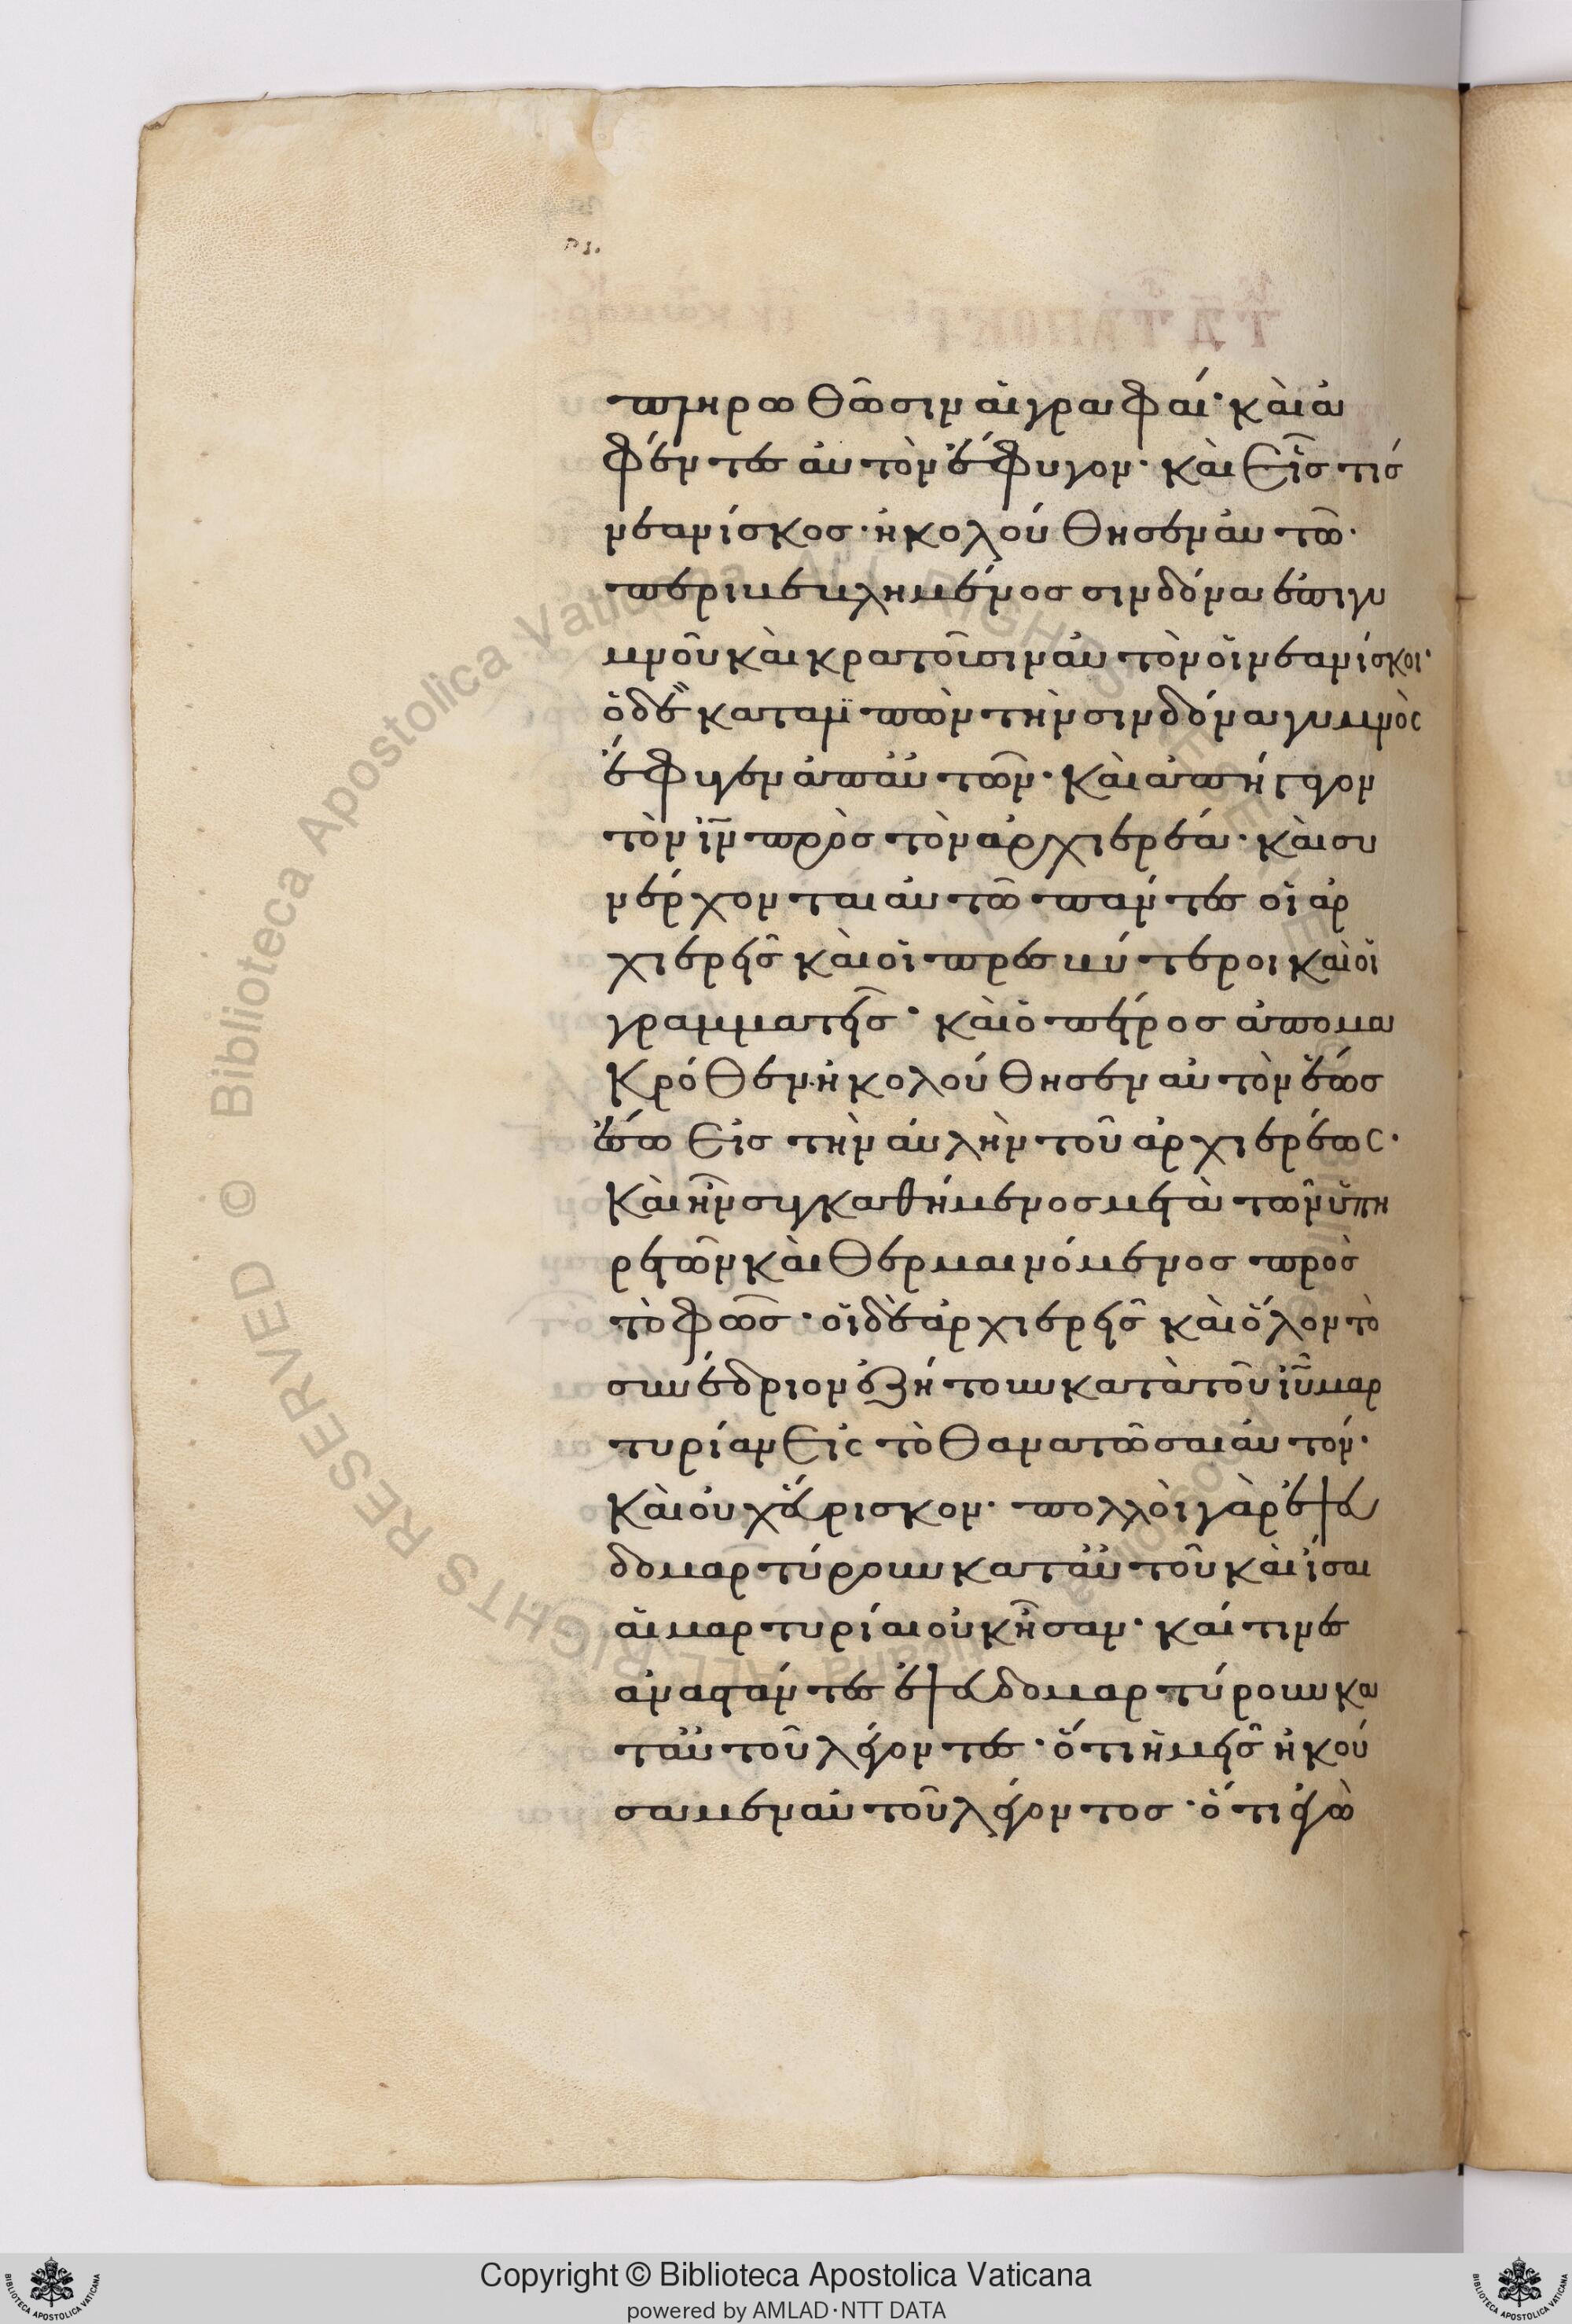 πληρωθῶσιν αἱ γραφαί· καὶ ἀ
φέντες αὐτὸν ἔφυγον· καὶ εἷς τίς
νεανίσκος· ἠκολούθησεν αὐτῶ·
περιβεβλημένος σινδόνα ἐπιγυ
μνοῦ καὶ κρατοῦσιν αὐτὸν οἱ νεανίσκοι·
ὁ δὲ καταλϊπὼν τὴν σινδόνα γυμνὸς
ἔφυγεν ἀπ αὐτῶν· καὶ ἀπήγαγον
τὸν ἰν πρὸς τὸν ἀρχιερέα· καὶ συ
νέρχονται αὐτῶ πάντες οἱ ἀρ
χιερεῖς καὶ οἱ πρεσβύτεροι καὶ οἱ
γραμματεῖς· καὶ ὁ πέτρος ἀπομα
κρόθεν· ἠκολούθησεν αὐτὸν ἕως
ἔσω εἰς τὴν αὐλὴν τοῦ ἀρχιερέως·
καὶ ἦν συγκαθήμενος μετὰ τῶν ὑπη
ρετῶν καὶ θερμαινόμενος πρὸς
τὸ φῶς· οἱ δὲ ἀρχιερεῖς καὶ ὅλον τὸ
συνέδριον ἐζήτουν κατὰ τοῦ ἰῦ μαρ
τυρίαν εἰς τὸ θανατῶσαι αὐτόν·
καὶ οὐχ εὕρισκον· πολλοὶ γὰρ ἐψευ
δομαρτύρουν κατ αὐτοῦ καὶ ἴσαι
αἱ μαρτυρίαι οὐκ ἦσαν· καί τινες
ἀναστάντες ἐψευδομαρτύρουν κα
τ αὐτοῦ λέγοντες· ὅτι ἡμεῖς ἠκού
σαμεν αὐτοῦ λέγοντος· ὅτι ἐγὼ
Biblioteca Apostolica Vaticana ALL RIGHTS RESERVED ©
Copyright © Biblioteca Apostolica Vaticana
powered by AMLAD·NTT DATA
BIBLIOTECA APOSTOLICA VATICANA
BIBLIOTECA APOSTOLICA VATICANA